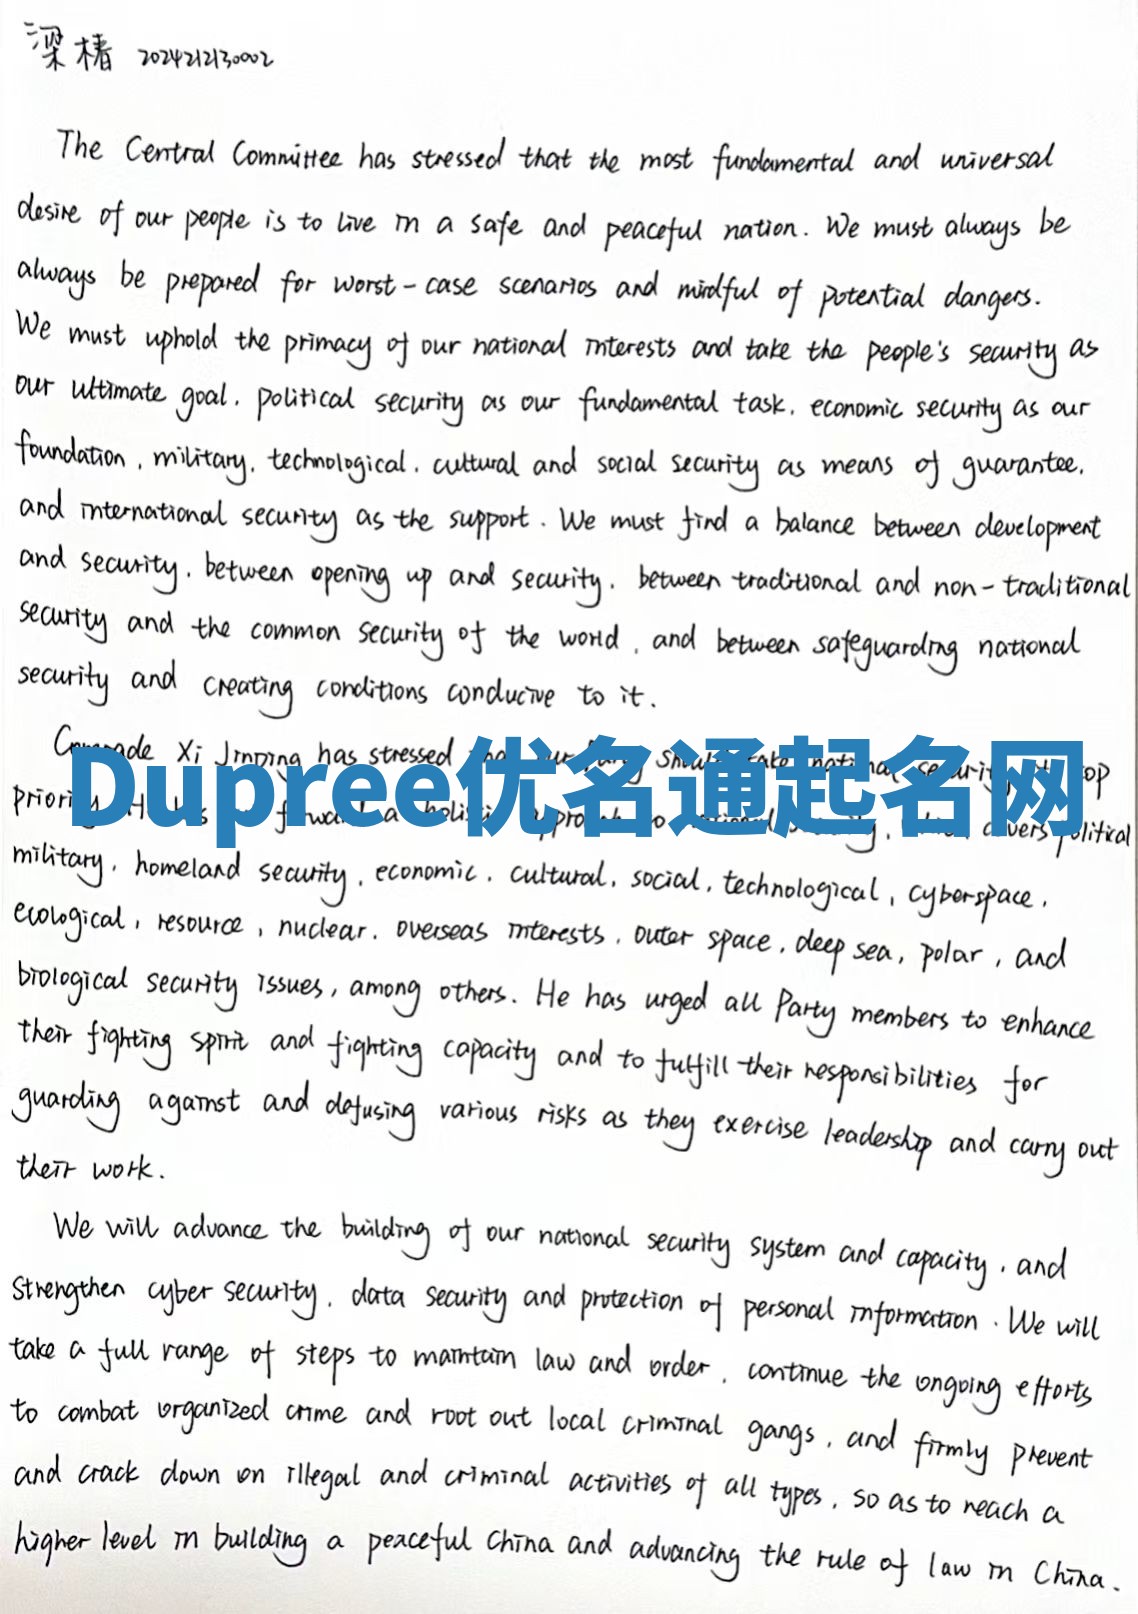 梁椿 2024212130002
The Central Committee has stressed that the most fundamental and universal
desire of our people is to live in a safe and peaceful nation. We must always be
always be prepared for worst-case scenarios and mindful of potential dangers.
We must uphold the primacy of our national interests and take the people's security as
our ultimate goal, political security as our fundamental task, economic security as our
foundation, military, technological, cultural and social security as means of guarantee,
and international security as the support. We must find a balance between development
and security, between opening up and security, between traditional and non-traditional
security and the common security of the world, and between safeguarding national
security and creating conditions conducive to it.
Xi Jinping has stressed
Dupree优名通起名网
military, homeland security, economic, cultural, social, technological, cyberspace,
ecological, resource, nuclear, overseas interests, outer space, deep sea, polar, and
biological security issues, among others. He has urged all Party members to enhance
their fighting spirit and fighting capacity and to fulfill their responsibilities for
guarding against and defusing various risks as they exercise leadership and carry out
their work.
We will advance the building of our national security system and capacity, and
strengthen cyber security, data security and protection of personal information. We will
take a full range of steps to maintain law and order, continue the ongoing efforts
to combat organized crime and root out local criminal gangs, and firmly prevent
and crack down on illegal and criminal activities of all types, so as to reach a
higher level in building a peaceful China and advancing the rule of law in China.